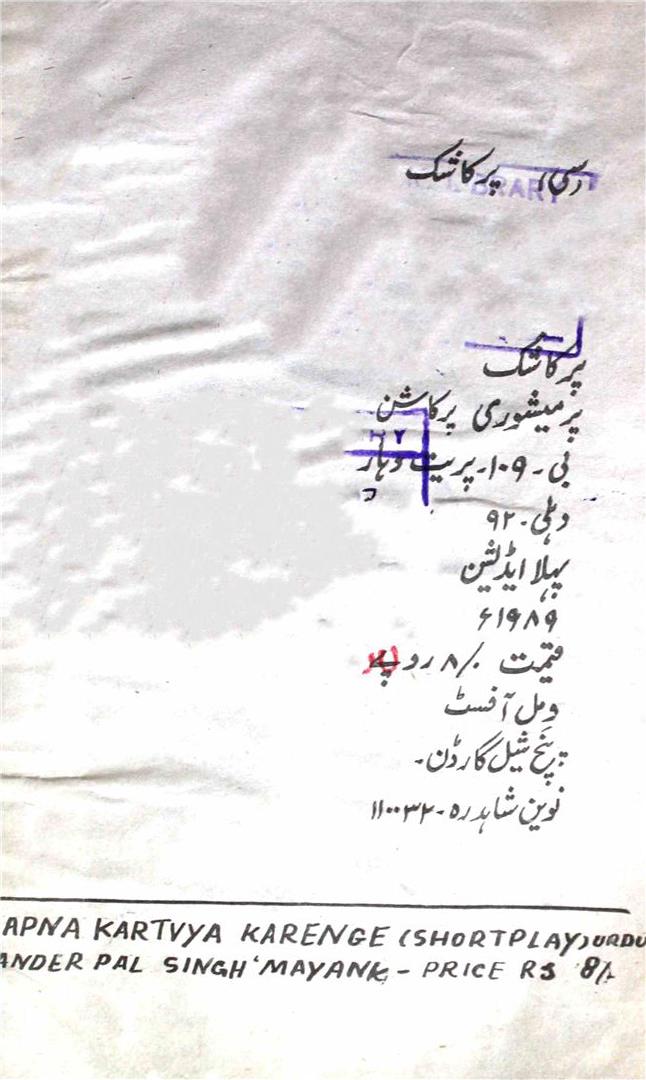 (سی) پرکاشک
پرکاشک
پرمیشوری پرکاشن
بی۔۱۰۹۔پریت وہار
دہلی۔۹۲
پہلا ایڈیشن
۱۹۸۹ء
قیمت ۸/۰ روپے
ومل آفسٹ
پنچ شیل گارڈن۔
نوین شاہدرہ۔۱۱۰۰۳۲
APNA KARTVYA KARENGE (SHORTPLAY) URDU
ANDER PAL SINGH 'MAYANK - PRICE RS 8/-